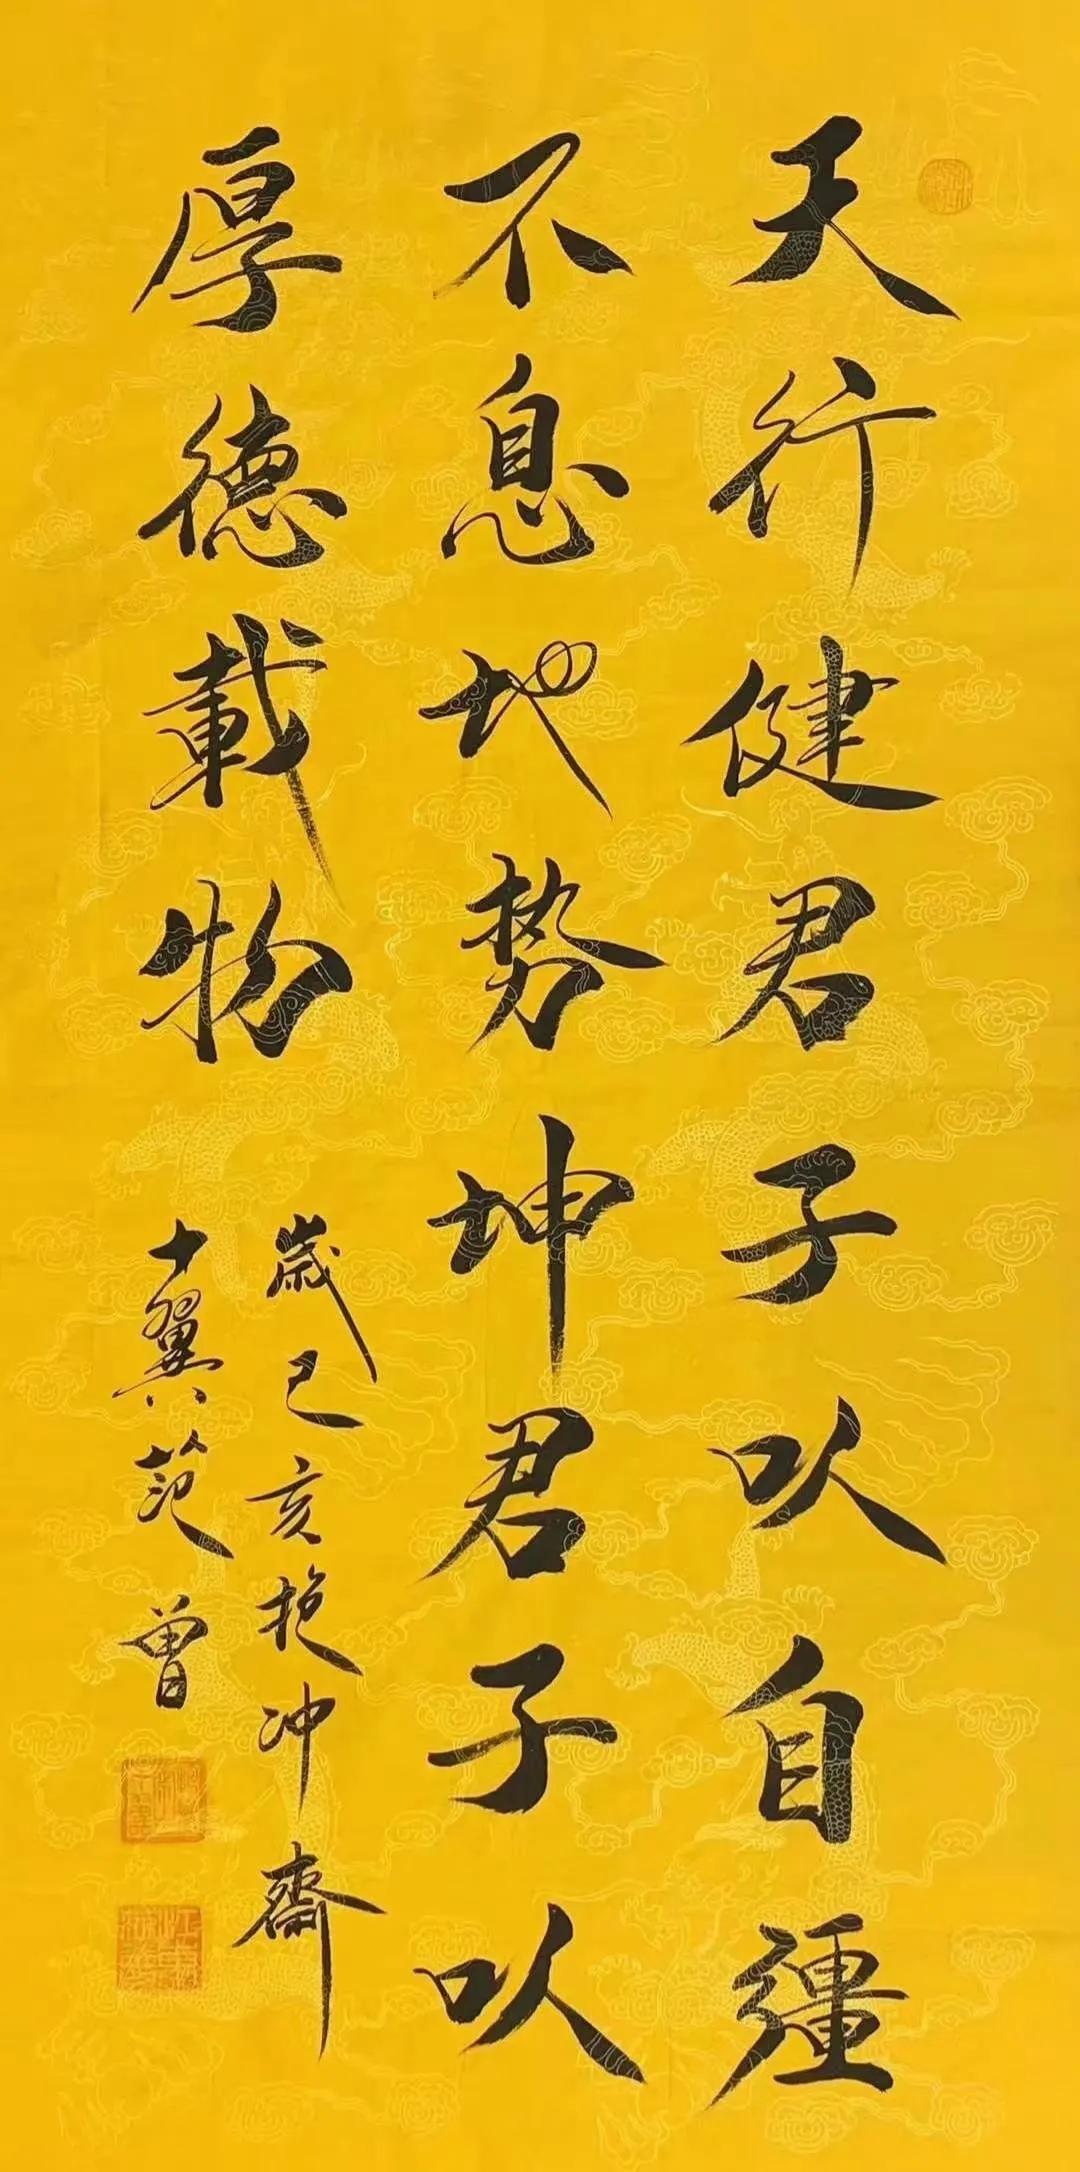 天行健君子以自彊
不息地势坤君子以
厚德載物
歳己亥抱冲齋
十翼范曾